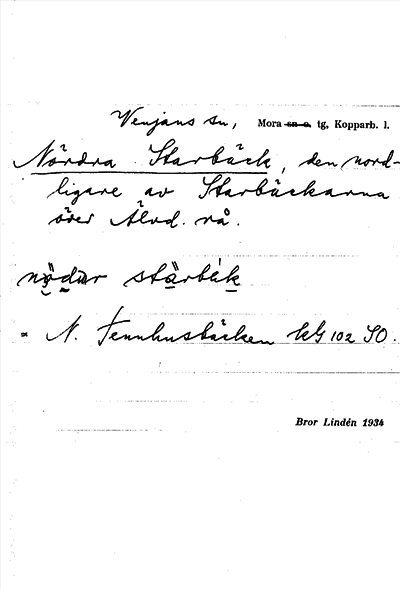 Venjans sn, Mora sn o. tg, Kopparb. l.
Nördra Starbäck, den nord-
ligare av Starbäckarna
över Älvd. rå.
stärbäk
= N. Tennhusbäcken kG 102 SO.
Bror Lindén 1934